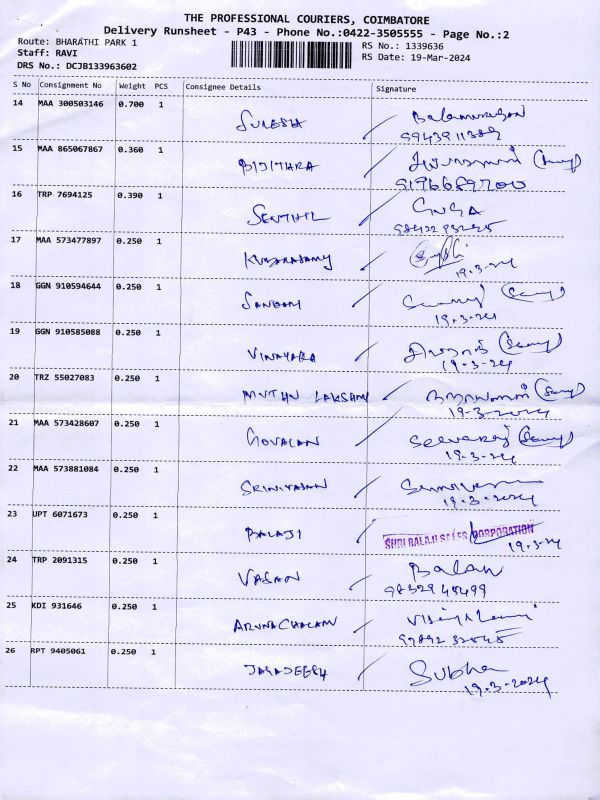 THE PROFESSIONAL COURIERS, COIMBATORE
Delivery Runsheet - P43 - Phone No.:0422-3505555 - Page No.:2
Route: BHARATHI PARK 1 RS No.: 1339636
Staff: RAVI RS Date: 19-Mar-2024
DRS No.: DCJB133963602
S No Consignment No Weight PCS Consignee Details Signature
14 MAA 300503146 0.700 1 SURESH Balamurugan
15 MAA 865067867 0.360 1 BIJITHRA
16 TRP 7694125 0.390 1 SENTHIL
17 MAA 573477897 0.250 1 KUMARASAMY
19.3.24
18 GGN 910594644 0.250 1
19.3.24
19 GGN 910585088 0.250 1 VINAYAKA
19.3.24
20 TRZ 55027083 0.250 1 MUTHU LAKSHMI
19.3.2024
21 MAA 573428607 0.250 1 GOVALAN
19.3.24
22 MAA 573881084 0.250 1 SRINIVASAN
19.3.2024
23 UPT 6071673 0.250 1 BALAJI SHRI BALAJI SALES CORPORATION
19.3.24
24 TRP 2091315 0.250 1 VASAN Balan
25 KDI 931646 0.250 1 ARUNACHALAM
26 RPT 9405061 0.250 1 JAGADEESH Subha
19.3.2024